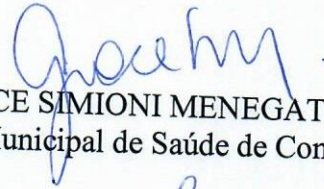 CE SIMIONI MENEGAT
Municipal de Saúde de Con